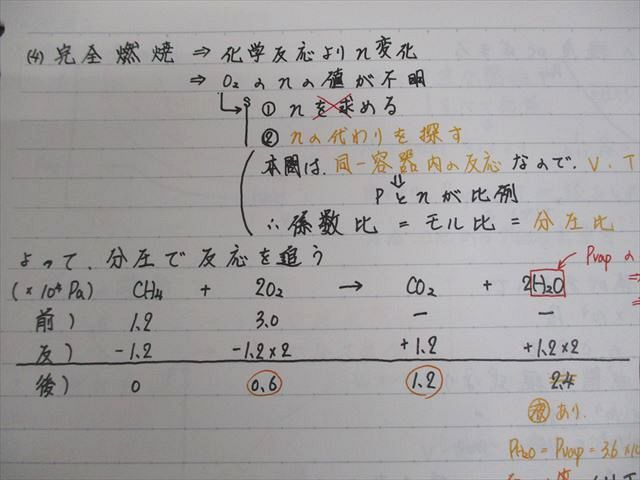 (4) 完全燃焼 ⇒ 化学反応よりn変化
⇒ O₂のnの値が不明
① nを求める
② nの代わりを探す
本問は、同一容器内の反応なので、V、T
Pとnが比例
∴ 係数比 = モル比 = 分圧比
よって、分圧で反応を追う
(×10⁴Pa) CH₄ + 2O₂ → CO₂ + 2H₂O
Pvap の
前) 1.2 3.0 − −
反) −1.2 −1.2×2 +1.2 +1.2×2
後) 0 0.6 1.2 2.4
液 あり.
PH₂O = Pvap = 3.6×10